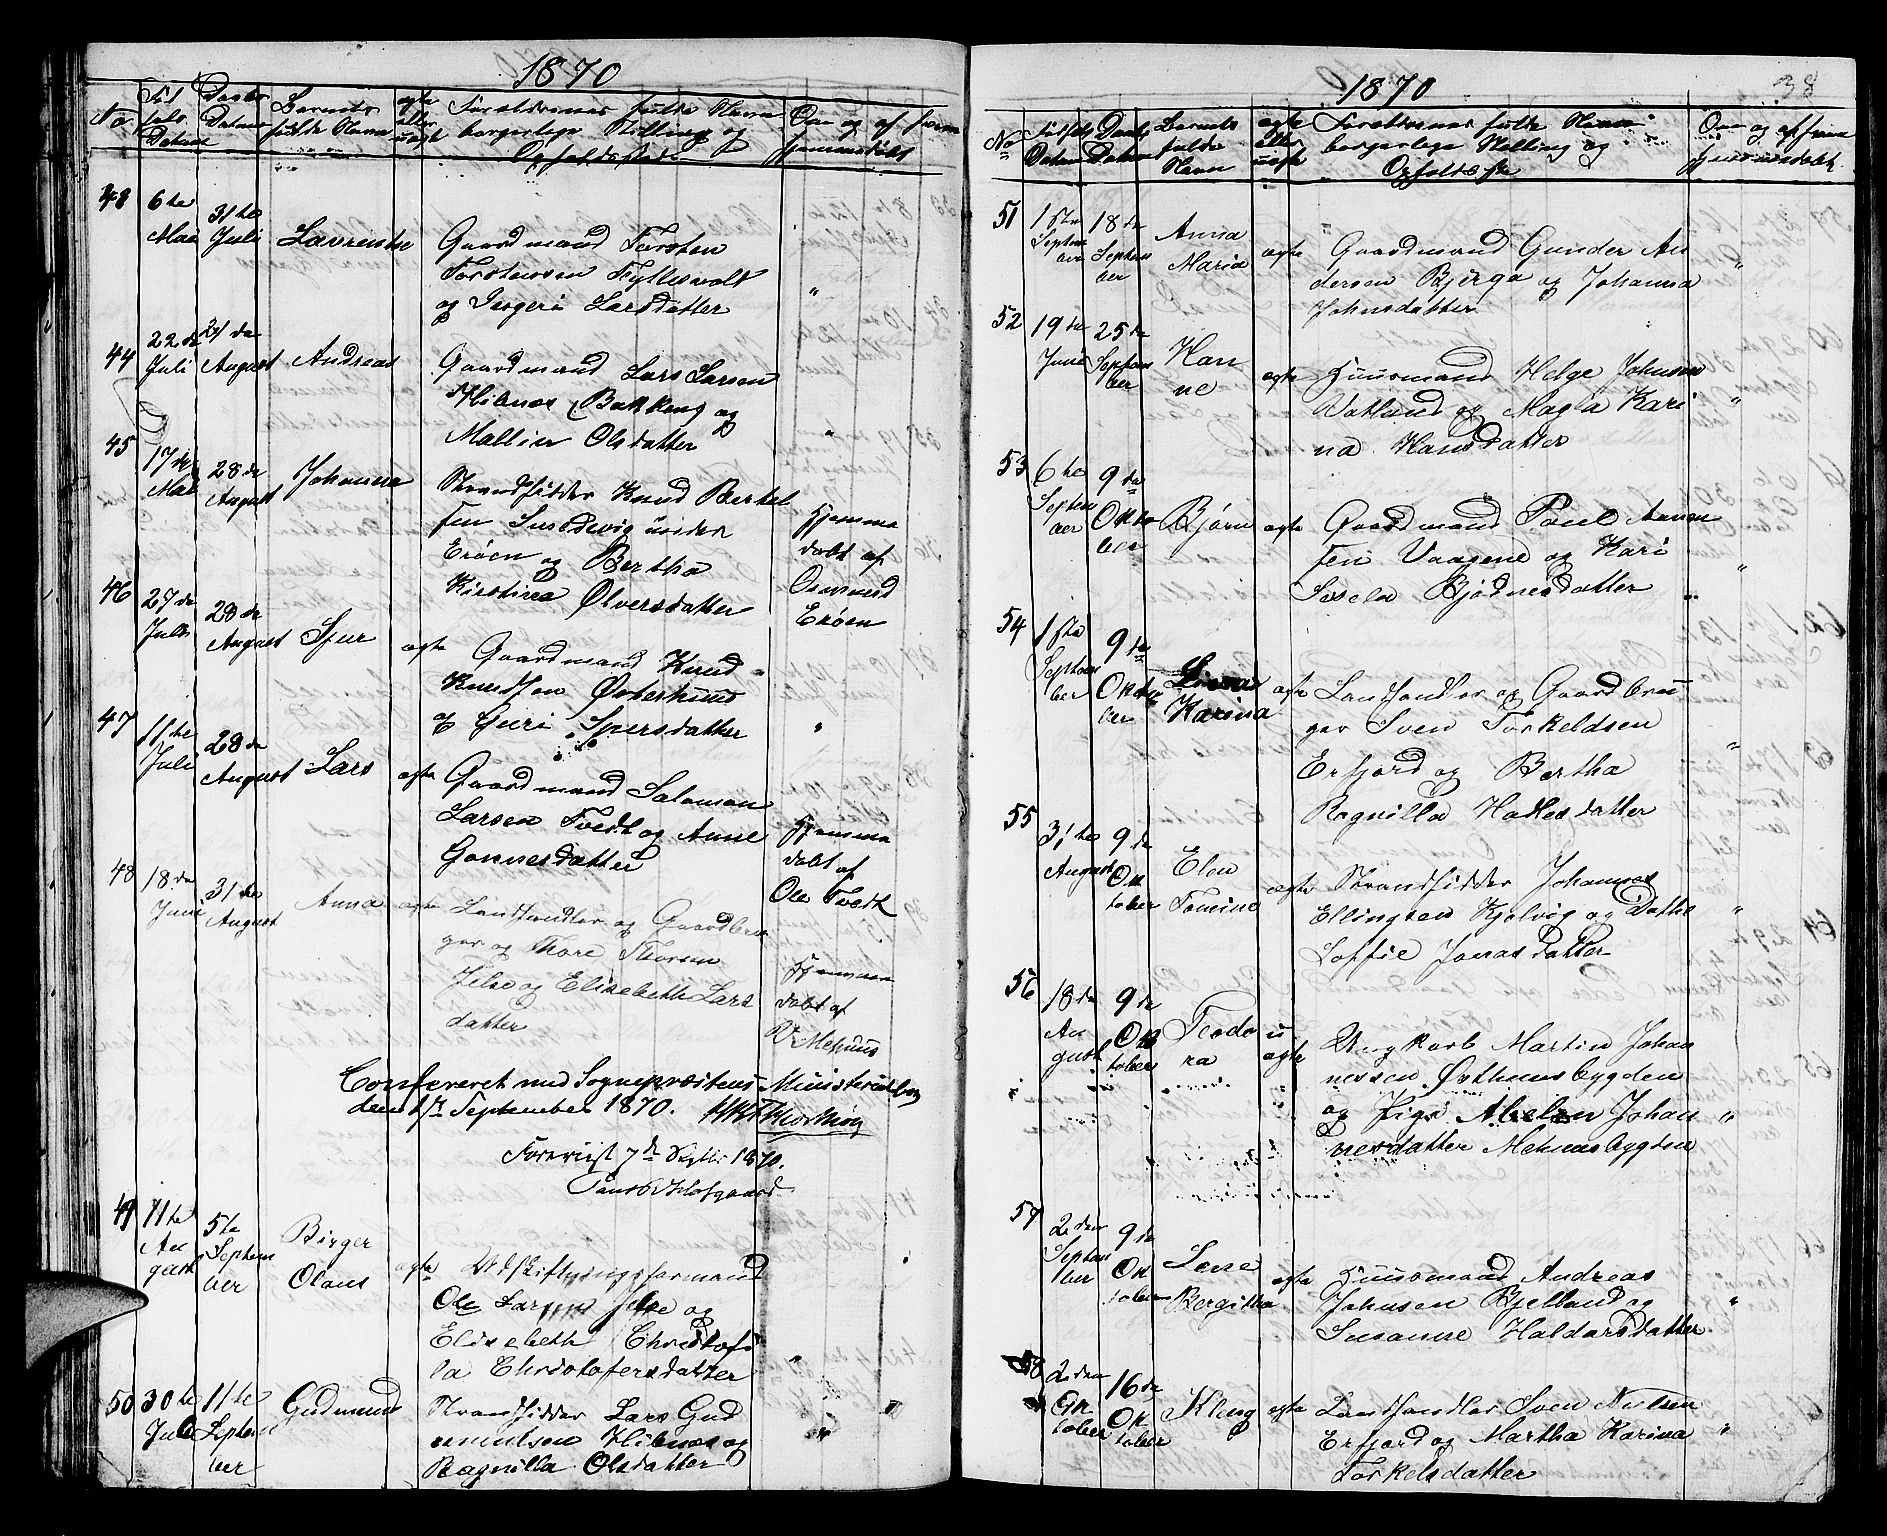 1870
No
Fød
sels
Datum
Daabs
Datum
Barnets
fulde Navn
ægte
eller
uægt
Forældrenes fulde Navn
borgerlige Stilling og
Opholdssted
Om og af hvem
hjemmedøbt
43
6te
Mai
31te
Juli
Lavrentse
Gaardmand Torsten
Torstensen Fyllesvolt
og Ingeri Larsdatter
"
44
22de
Juli
21de
August
Andreas
Gaardmand Lars Larsen
Hibnes (Bakken) og
Mallin Olsdatter
"
45
17de
Mai
28de
August
Johanna
Strandsidder Knud Bertel
sen under
Erøen og Bertha
Kirstina Ølversdatter
hjemme
døbt af
Osmund
Erøen
46
27de
Juli
28de
August
Sjur
ægte
Gaardmand Knud
Knudsen Østerhuus
og Guri Sjursdatter
"
47
11te
Juli
28de
August
Lars
ægte
Gaardmand Salomon
Larsen Tvedt og Anne
Gonnesdatter
hjemme
døbt af
Ole Tvedt
48
18de
Juni
31te
August
Anna
ægte
Landhandler og Gaardbru
ger og Thore Thorsen
Jelse og Elisebeth Lars
datter
hjemme
døbt af
V. Mehuus
Confereret med Sognepræstens Ministerialbog
den 1ste September 1870.
Foreviist 7de Septbr 1870.
49
11te
Au
gust
5te
Septem
ber
Birger
Olaus
ægte
Udskiftningsformand
Ole Larsen Jelse og
Elisebeth Christofi
la Christofersdatter
"
50
30te
Juli
11te
Septem
ber
Gudmund
Strandsidder Lars Gud
mundsen Hibnes og
Ragnilla Olsdatter
"
1870
38
No
Fødsels
Datum
Daabs
Datum
Barnets
fulde
Navn
ægte
eller
uægte
Forældrenes fulde Navn
borgerlige Stilling og
Opholdste
Om og af hvem
hjemmedøbt
51
1ste
Septem
ber
18de
Septem
ber
Anna
Maria
ægte
Gaardmand Gunder An
dersen Bjerga og Johanna
Johnsdatter
"
52
19de
Juni
25de
Septem
ber
Han
ne
ægte
Huusmand Helge Johnsen
Vatland og Magla Kari
na Hansdatter
"
53
6te
Septem
ber
9de
Okto
ber
Bjørn
ægte
Gaardmand Poul Aanen
sen Vaagene og Kari
Sesela Bjødnesdatter
"
54
1ste
Septem
ber
9de
Okto
ber
Karina
ægte
Landhandler og Gaardbru
ger Sven Torkeldsen
Erfjord og Bertha
Ragnilla Hadlesdatter
"
55
31te
August
9de
Ok
tober
Elen
Tomine
ægte
Strandsidder Johannes
Ellingsen Kjølvig og Dothe
Soffie Jonasdatter
"
56
18de
Au
gust
9de
Ok
tober
Teodo
ra
u
ægte
Ungkarl Martin Johan
nessen Østhuusbygden
og Pige Johan
nesdatter Mehuusbygden
"
57
2den
Septem
ber
9de
Ok
tober
Lene
Bergitha
ægte
Huusmand Andreas
Johnsen Bjelland og
Susanne Haldorsdatter
"
58
2den
Ok
tober
16de
Ok
tober
Kleng
ægte
Landhandler Sven Nielsen
Erfjord og Martha Karina
Torkelsdatter
"